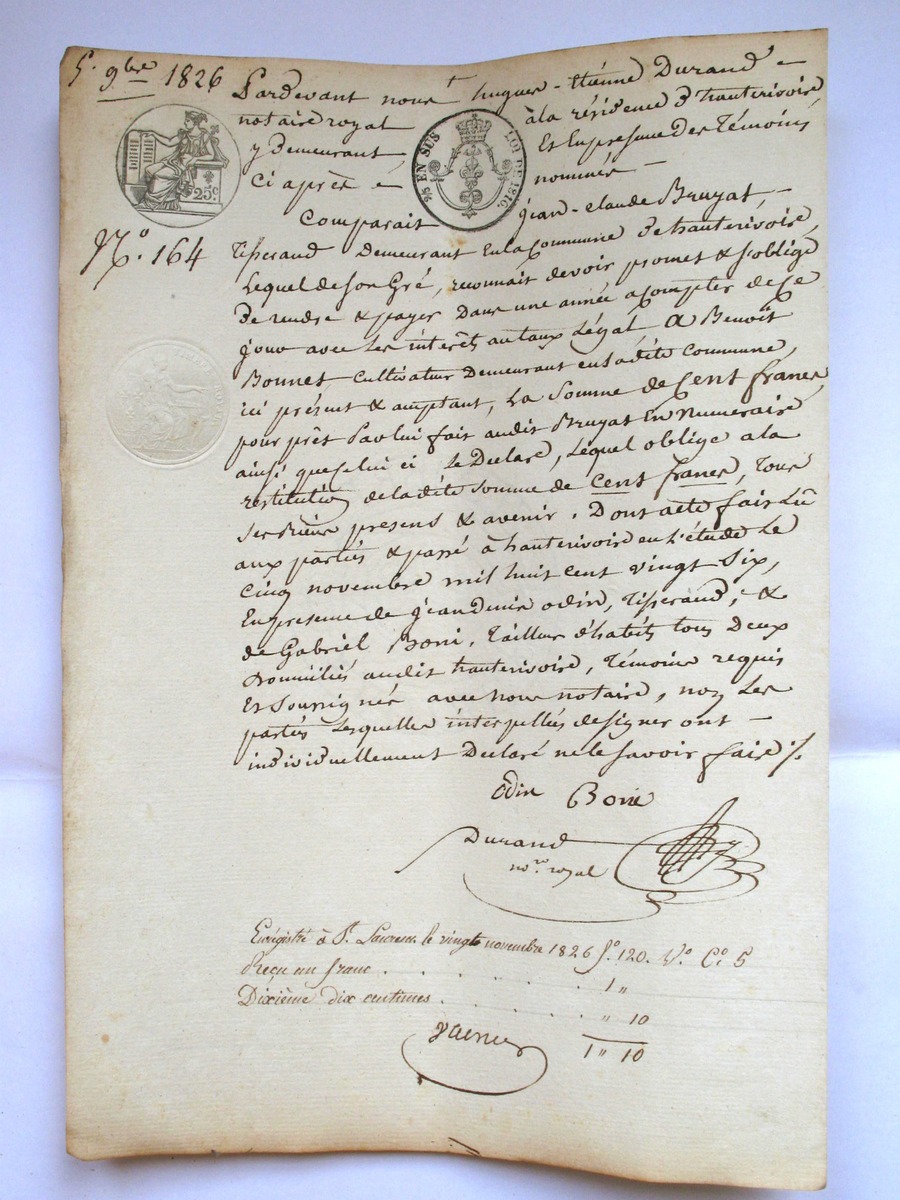 5. 9bre 1826
Pardevant nous hugues-Etienne Durand
notaire royal à la résidence d'hauterivoire
y Demeurant, Et En presense Des Témoins
Ci après nommés
25c.
2/5 EN SUS LOI DE 1816.
N.o 164
Comparait jean-claude Bruyat,
Tisserand Demeurant En la Commune D'hauterivoire,
Lequel de son Gré, reconnait devoir promet & s'oblige
De rendre & payer Dans une année a compter de Ce
jour avec Les intérêts au taux Légal A Benoît
Bonnet Cultivateur Demeurant en Sadite Commune,
ici présent & acceptant, La Somme de Cent francs
pour prêt Par lui fait audit Bruyat En Numeraire
ainsi que Celui ci Le Declare, Lequel oblige a la
restitution de ladite Somme de Cent francs, Tous
Ses Biens presens & avenir. Dont acte fait Lû
aux parties & passé à hauterivoire en L'étude Le
Cinq novembre mil huit cent vingt Six,
En presense de jean denis odin, Tisserand, &
de Gabriel Boni, Tailleur d'habits tous Deux
Domiciliés audit hauterivoire, Témoins requis
Et Soussignés avec Nous notaire, non Les
parties Lesquelles interpellées de signer ont
individuellement Declaré ne le Savoir faire ./.
Odin Boni
Durand
nore royal
Enrégistré à St. Laurent le vingt novembre 1826 fo. 120. Vo. Co. 5
Reçu un franc . . . . . 1 "
Dixième dix centimes . . . . . " 10
1 " 10